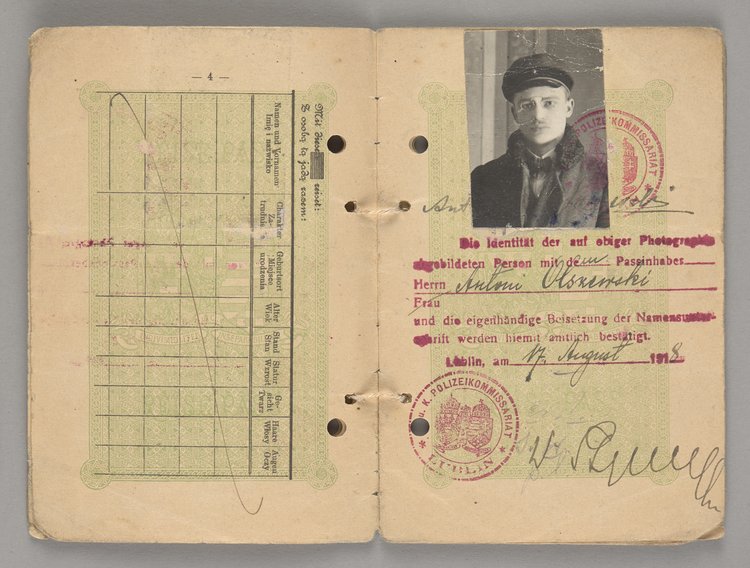 — 4 —
Mit dieser reiset:
Z osobą tą jadą razem:
Namen und Vornamen
Imię i nazwisko
Charakter
Za-
trudnie
Geburtsort
Miejsce
urodzenia
Alter
Wiek
Stand
Stan
Statur
Wzrost
Ge-
sicht
Twarz
Haare
Włosy
Augen
Oczy
POLIZEIKOMMISSARIAT
Ant
Die Identität der auf obiger Photographie
abgebildeten Person mit dem Passinhaber
Herrn Antoni Olszewski
Frau
und die eigenhändige Beisetzung der Namensunter-
schrift werden hiemit amtlich bestätigt.
Lublin, am 17. August 1918
K. u. K. POLIZEIKOMMISSARIAT
* LUBLIN *